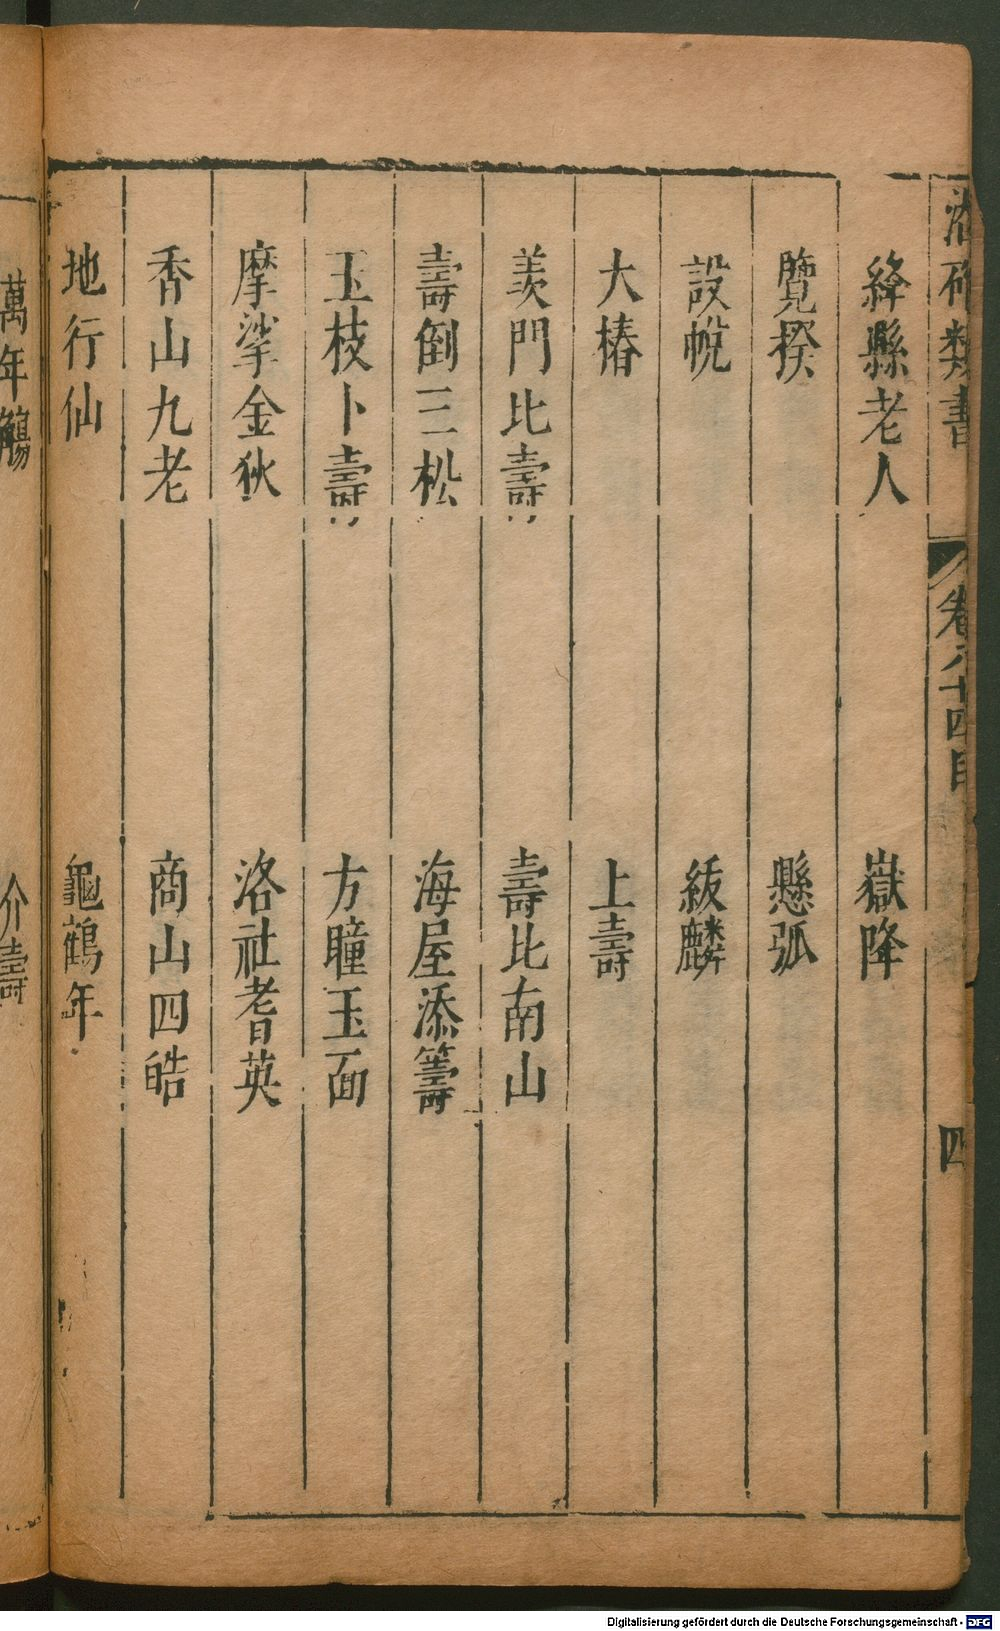 類書 卷六十四目 四
絳縣老人 嶽降
覽揆 懸弧
設帨 紱麟
大椿 上壽
羨門比壽 壽比南山
壽倒三松 海屋添籌
玉枝卜壽 方瞳玉面
摩挲金狄 洛社耆英
香山九老 商山四皓
地行仙 龜鶴年
萬年觴 介壽
Digitalisierung gefördert durch die Deutsche Forschungsgemeinschaft - DFG